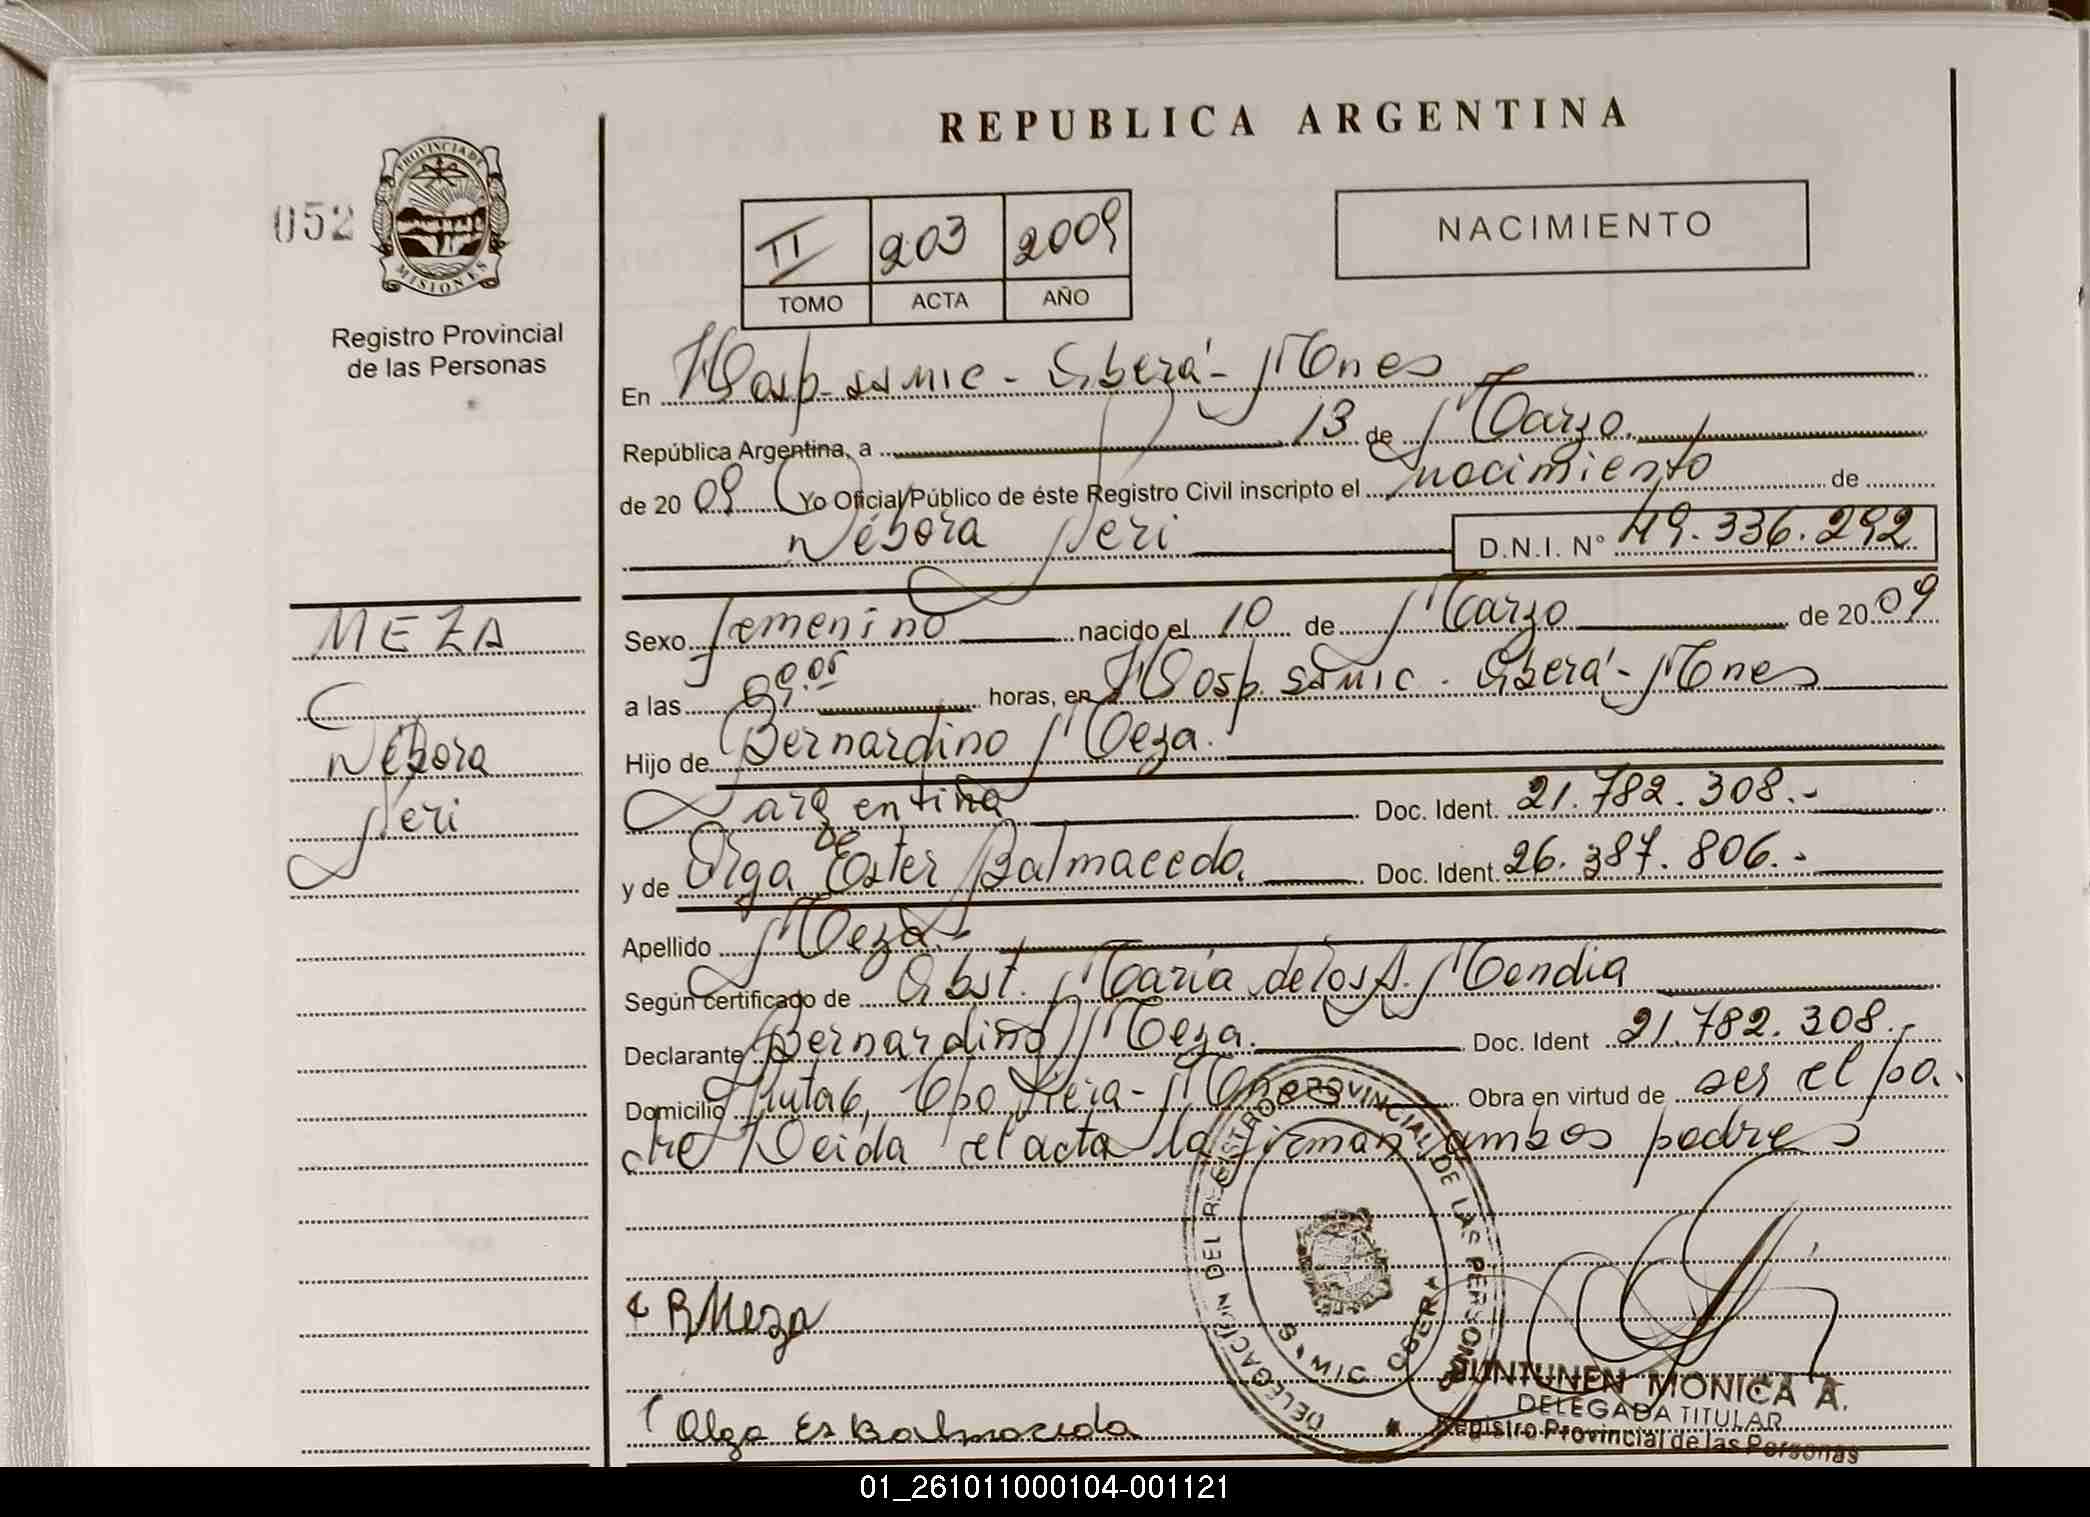 REPUBLICA ARGENTINA
052
PROVINCIA DE
MISIONES
Registro Provincial
de las Personas
NACIMIENTO
II 203 2009
TOMO ACTA AÑO
En Hosp. Samic - Oberá - Mnes
República Argentina, a 13 de Marzo
de 2009 Yo Oficial Público de éste Registro Civil inscripto el nacimiento de
Débora Neri D.N.I. Nº 49.336.292
MEZA
Débora
Neri
Sexo femenino nacido el 10 de Marzo de 2009
a las 09.05 horas, en Hosp. Samic. Oberá - Mnes
Hijo de Bernardino Meza.
argentina Doc. Ident. 21.782.308.-
y de Olga Ester Balmaceda. Doc. Ident. 26.387.806.-
Apellido Meza.
Según certificado de Obst. María de los A. Mendia
Declarante Bernardino Meza. Doc. Ident 21.782.308.-
Domicilio Ruta 6, Cpo Viera - Mnes Obra en virtud de ser el pa-
dre Leida el acta la firman ambos padres
BMeza
Olga Es Balmaceda
DELEGACIÓN DEL REGISTRO PROVINCIAL DE LAS PERSONAS
SAMIC OBERA
MONICA A.
DELEGADA TITULAR
Registro Provincial de las Personas
01_261011000104-001121